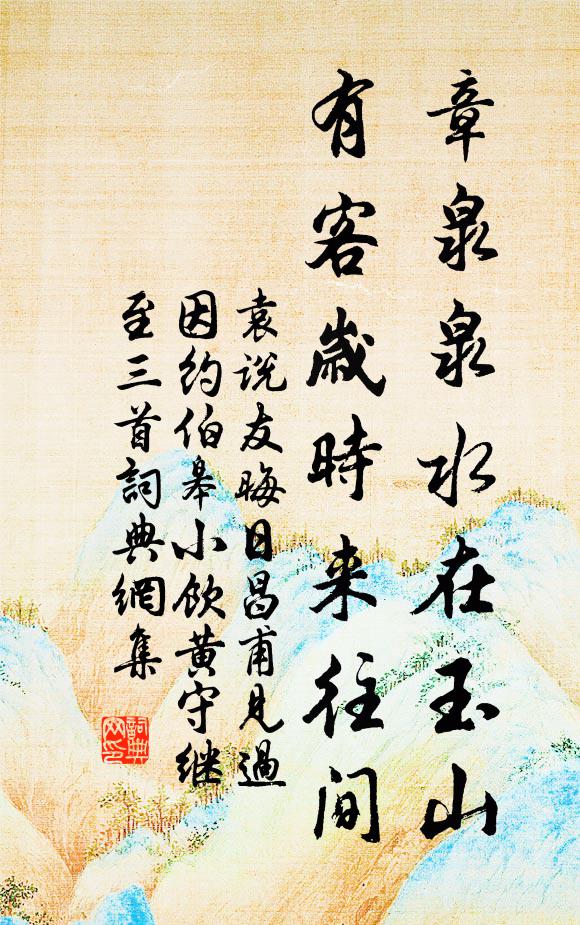 章泉泉水在玉山
有客歲時来往間
袁说友晦日昌甫見過
因约伯皋小飲黄守继
至三首詞典網集
詞典
网印